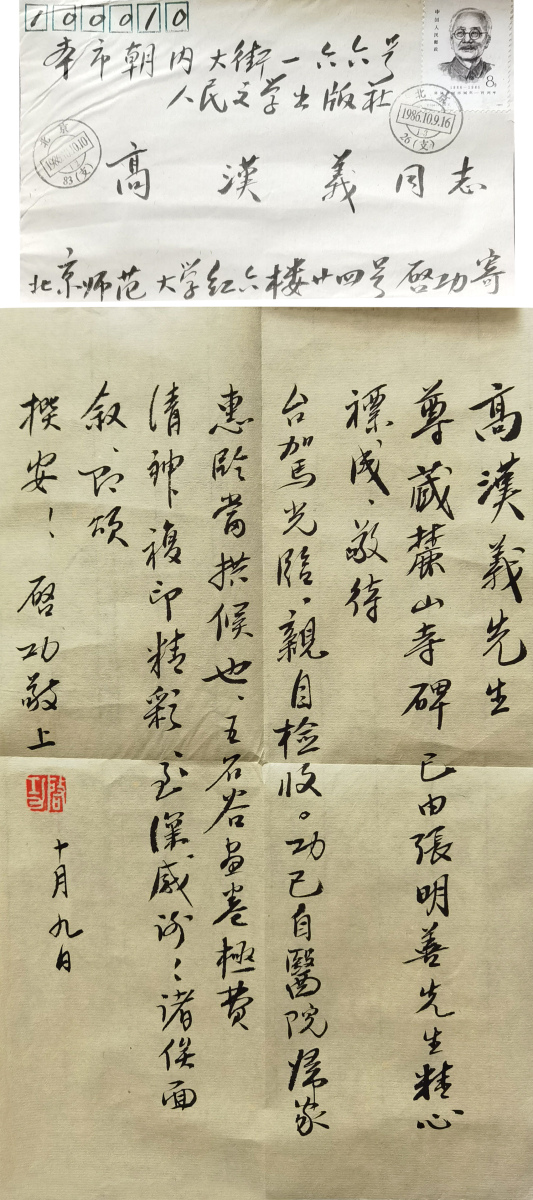 100010
本市朝内大街一六六号
人民文学出版社
高漢義同志
北京师范大学红六楼廿四号 启功寄
中国人民邮政
8分
北京
1986.10.9.16
26(支)
北京
10.10
83(支)
高漢義先生
尊藏麓山寺碑已由張明善先生精心
裱成、敬待
台駕光臨、親自檢收。功已自醫院歸家
惠臨當拱候也、王石谷画卷極費
清神、複印精彩、至深感谢、诸俟面
叙、即頌
撰安！ 启功敬上
启功
十月九日